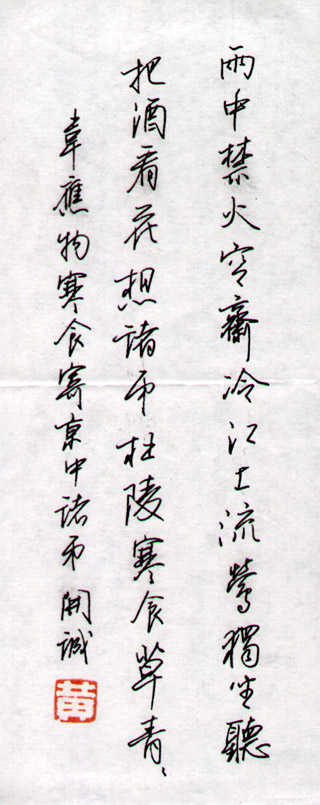 雨中禁火空齋冷江上流鶯獨坐聽
把酒看花想諸弟杜陵寒食草青〻
韋應物寒食寄京中諸弟 開誠
黃